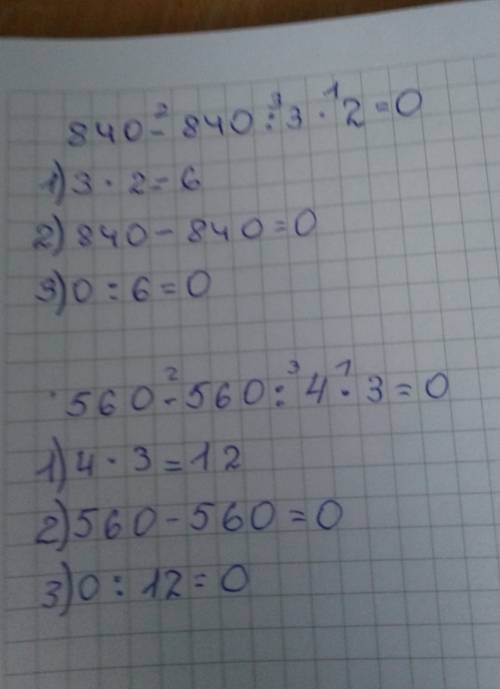 840 - 840 : 3 · 2 = 0
2 3 1
1) 3 · 2 = 6
2) 840 - 840 = 0
3) 0 : 6 = 0
560 - 560 : 4 · 3 = 0
2 3 1
1) 4 · 3 = 12
2) 560 - 560 = 0
3) 0 : 12 = 0